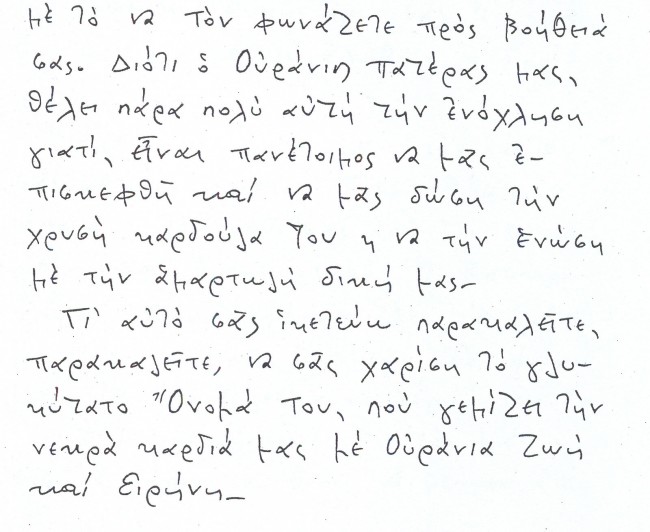 μὲ τὸ νὰ τὸν φωνάζετε πρὸς βοήθειά
σας. Διότι ὁ Οὐράνιη πατέρας μας,
θέλει πάρα πολὺ αὐτὴ τὴν ἐνόχληση
γιατί, εἶναι πανέτοιμος νὰ μᾶς ἐ-
πισκεφθῆ καί νὰ μᾶς δώση τὴν
χρυσὴ καρδούλα Του νὰ τὴν ἑνώση
μὲ τὴν ἁμαρτωλὴ δική μας_
Γι' αὐτὸ σᾶς ἱκετεύω παρακαλεῖτε,
παρακαλεῖτε, νὰ σᾶς χαρίση τὸ γλυ-
κύτατο Ὄνομά Του, ποὺ γεμίζει τὴν
νεκρὰ καρδιά μας μὲ Οὐράνια Ζωή
καί Εἰρήνη_